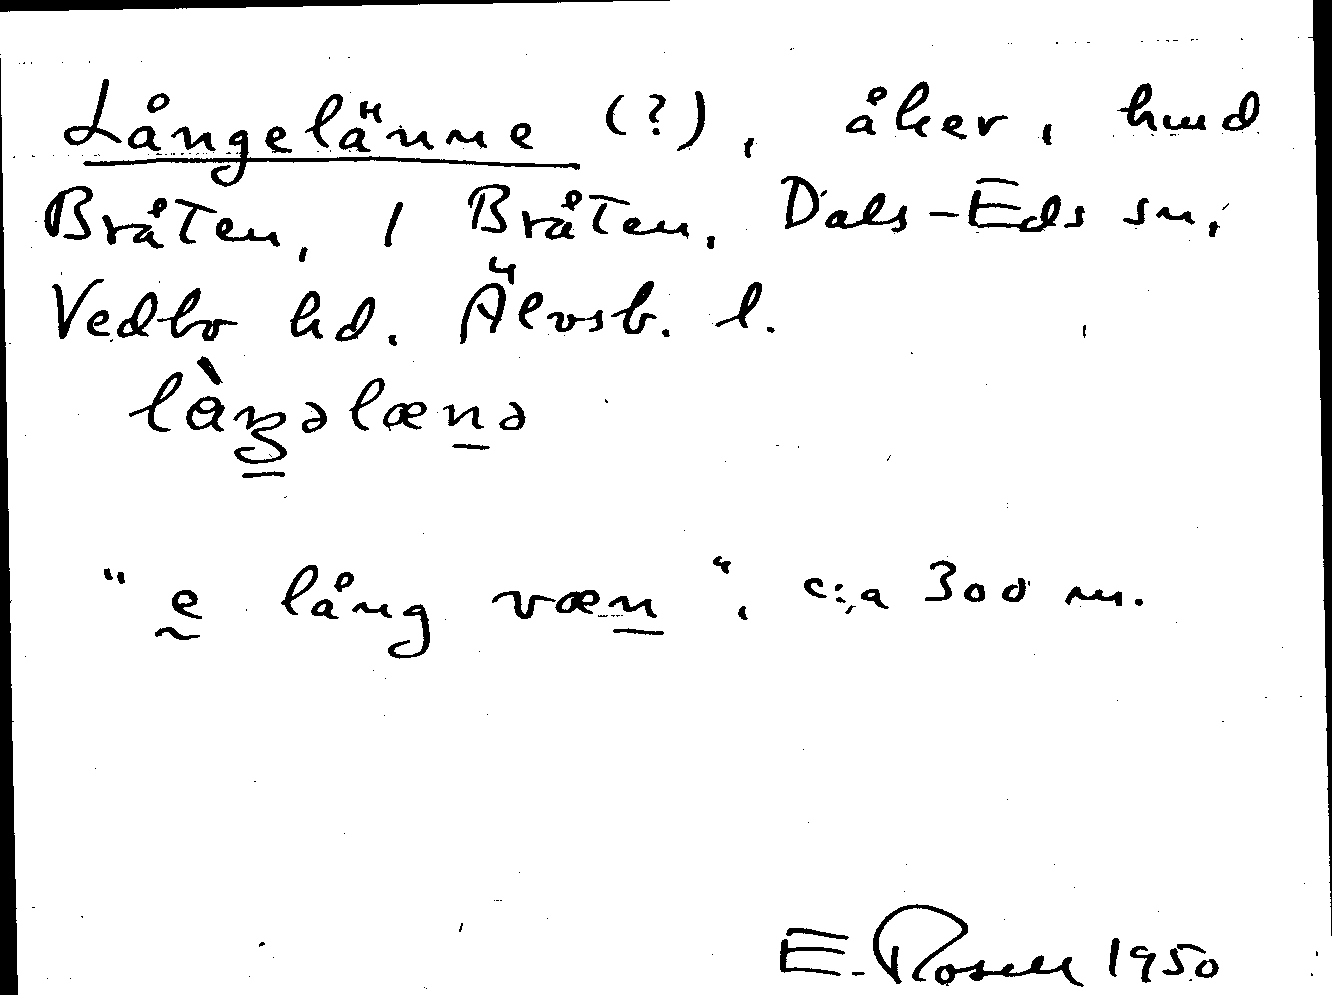 Långelänne (?), åker, hmd
Bråten, 1 Bråten, Dals-Eds sn,
Vedbo hd. Älvsb. l.
làŋəlænə
"e lång væn", c:a 300 m.
E. Rosell 1950